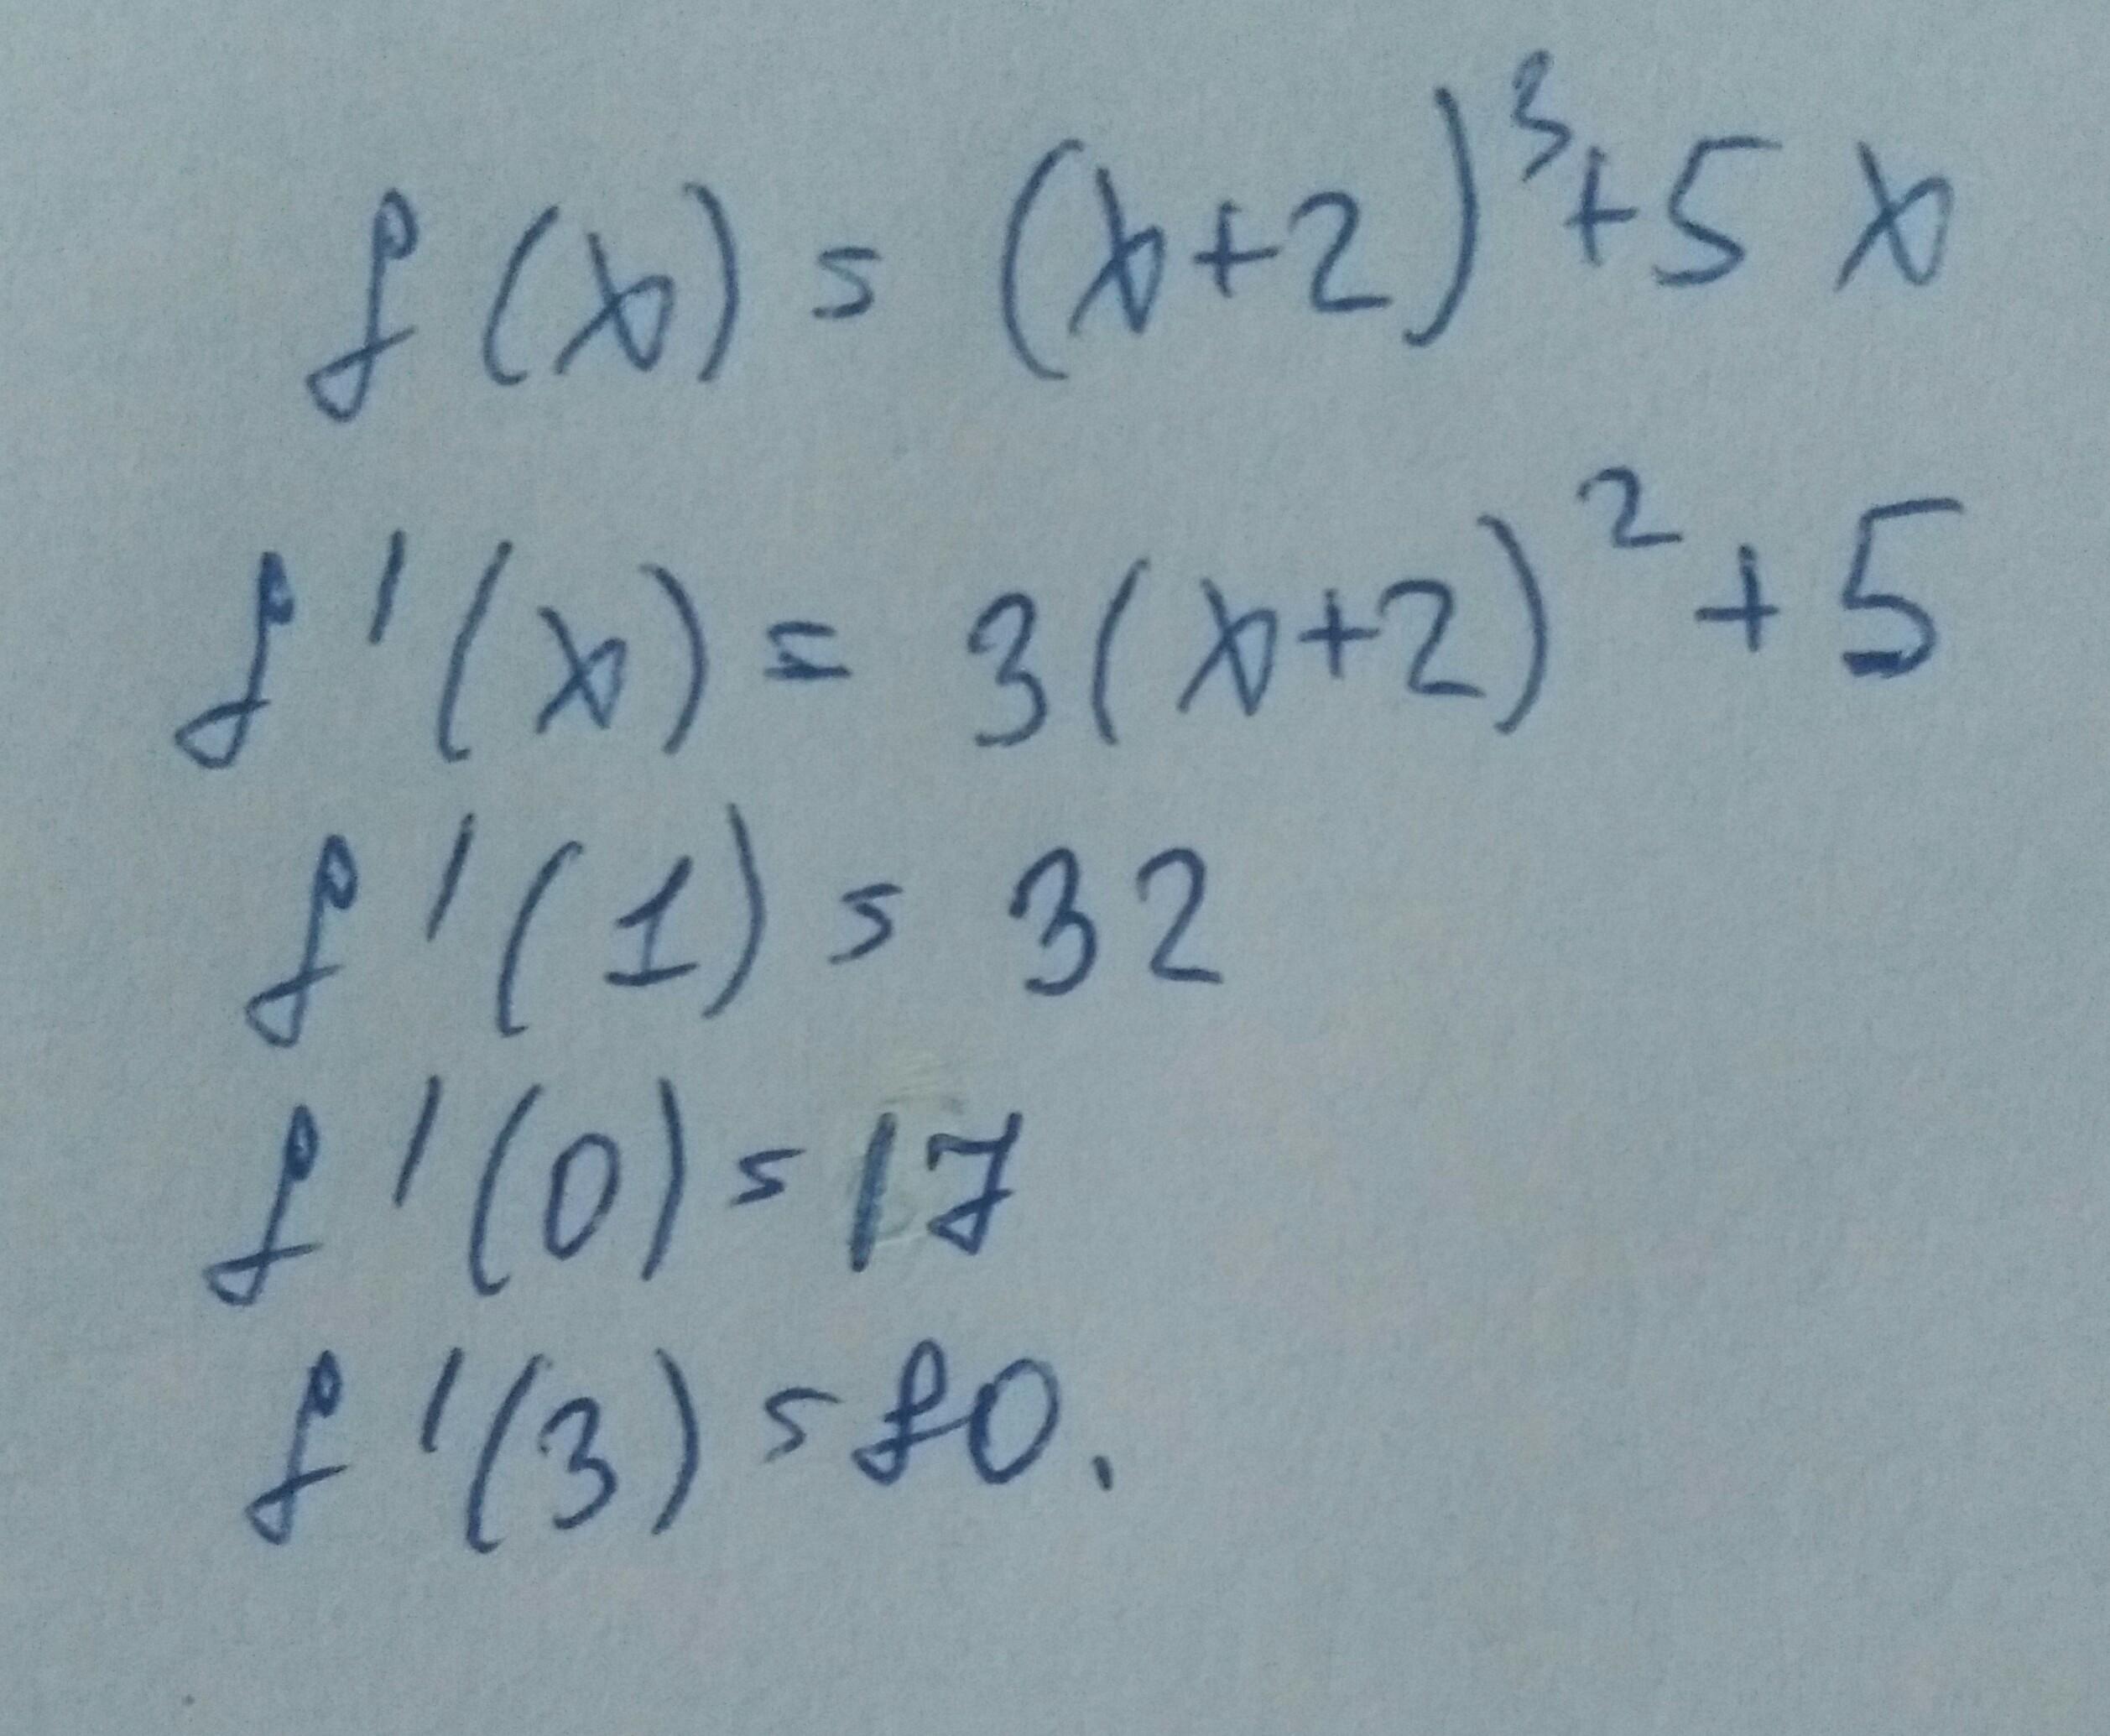 f(x) = (x+2)³+5x
f'(x) = 3(x+2)²+5
f'(1) = 32
f'(0) = 17
f'(3) = 80.